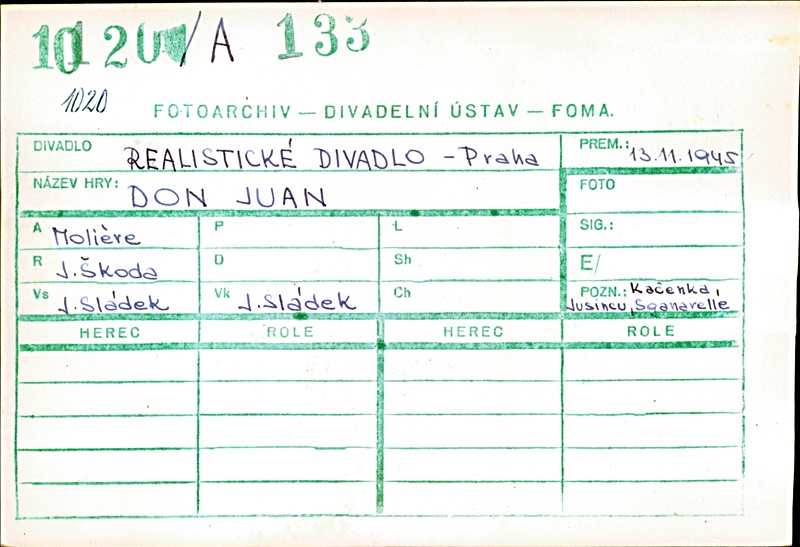 1020/A 135
1020
FOTOARCHIV — DIVADELNÍ ÚSTAV — FOMA.
DIVADLO REALISTICKÉ DIVADLO - Praha
PREM.: 13.11.1945
NÁZEV HRY: DON JUAN
FOTO
A Molière
P
L
SIG.:
R J. Škoda
D
Sh
E/
Vs J. Sládek
Vk J. Sládek
Ch
POZN.: Kačenka,
Jusincu, Sganarelle
HEREC ROLE HEREC ROLE